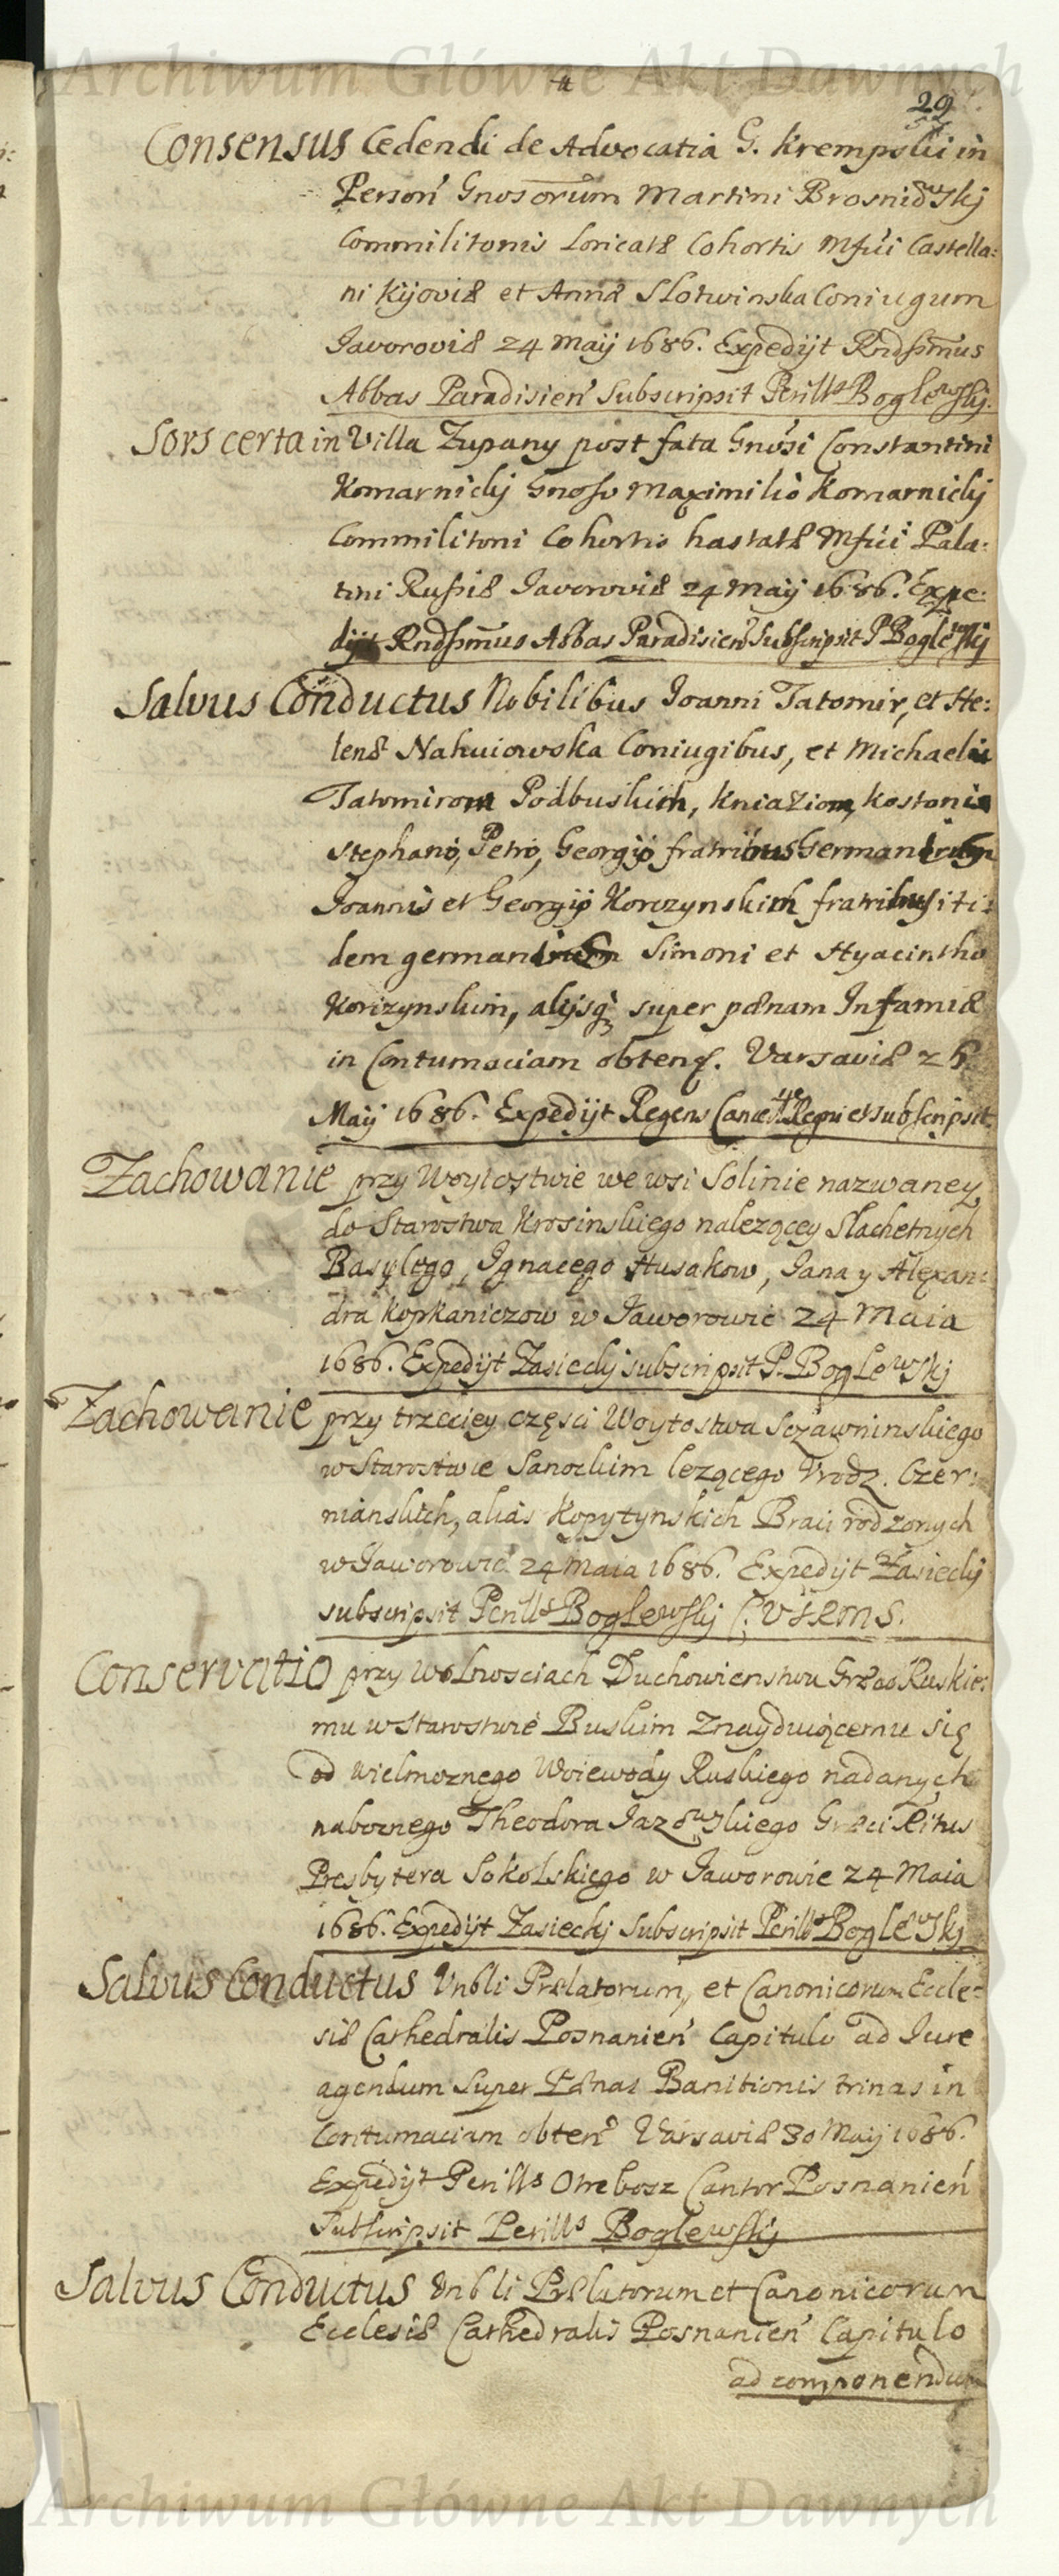 Archiwum Główne Akt Dawnych
29
Consensus Cedendi de Advocatia G. Krempski in
Person' Gnosorum Martini Brosniowskj
Commilitonis Loricatæ Cohortis Mfici Castella:
ni Kijoviæ et Anna Slotwinska Coniugum
Javoroviæ 24 Maij 1686. Expedijt Rndssimus
Abbas Paradisien' Subscripsit Perills Boglewskj.
Sors certa in Villa Zupany post fata Gnosi Constantini
Komarnickj Gnoso Maximilio Komarnickj
Commilitoni Cohortis hastatæ Mfici Pala:
tini Russiæ Javoroviæ 24 Maij 1686. Expe:
dijt Rndssimus Abbas Paradisien' Subscripsit P Boglewskj
Salvus Conductus Nobilibus Joanni Tatomir, et He:
lenæ Nahuiowska Coniugibus, et Michaeli
Tatomirom Podbuskim, Kniaziom, Kostoni
Stephano, Petro, Georgio fratribus Germanis
Joannis et Georgij Korczynskim fratribus iti:
dem germanis Simoni et Hyacintho
Korczynskim, alijsq super pænam Infamiæ
in Contumaciam obtenq. Varsaviæ 25
Maij 1686. Expedijt Regens Canc Regni et subscripsit
Zachowanie przy Woytostwie we wsi Solinie nazwaney
do Starostwa Krosinskiego nalezącey Slachetnych
Basylego, Ignacego Husakow, Jana y Alexan:
dra Kopkaniczow w Jaworowie 24 Maia
1686. Expedijt Zasieckj subscripsit P. Boglewskj
Zachowanie przy trzeciey częsci Woytostwa Sczawninskiego
w Starostwie Sanockim lezącego Vrodz. Czer:
nianskich, alias Kopytynskich Braci rodzonych
w Jaworowie 24 Maia 1686. Expedijt Zasieckj
subscripsit Perills Boglewskj
Conservatio przy Wolnosciach Duchowienstwu Græco Ruskie:
mu w Starostwie Buskim Znayduiącemu się
od Wielmoznego Woiewody Ruskiego nadanych
naboznego Theodora Jazowskiego Græci Ritus
Presbytera Sokolskiego w Jaworowie 24 Maia
1686. Expedijt Zasieckj Subscripsit Perills Boglewskj
Salvus Conductus Vnbli Prælatorum, et Canonicorum Eccle:
siæ Cathedralis Posnanien' Capitulo ad Jure
agendum Super Pænas Banitionis trinas in
Contumaciam obten' Varsaviæ 30 Maij 1686.
Expedijt Perills Otrebosz Cantor Posnanien'
Subscripsit Perills Boglewskj
Salvus Conductus Vnbli Prælatorum et Canonicorum
Ecclesiæ Cathedralis Posnanien' Capitulo
ad componendum
Archiwum Główne Akt Dawnych